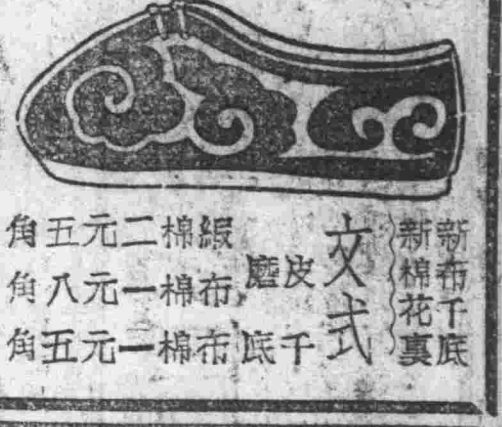 新布千底
新棉花裏
文式
皮磨
千底
緞棉二元五角
布棉一元八角
布棉一元五角